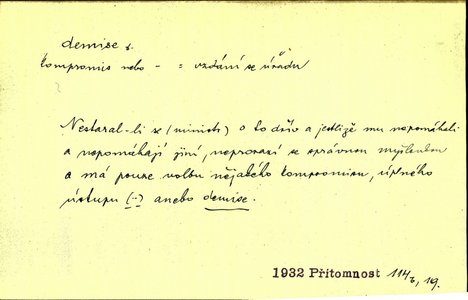 demise f.
kompromis nebo - = vzdání se úřadu
Nestaral-li se (ministr) o to dřív a jestliže mu nepomáhali
a nepomáhají jiní, neprorazí se správnou myšlenkou
a má pouze volbu nějakého kompromisu, úplného
ústupu (..) anebo demise.
1932 Přítomnost 114, 19.